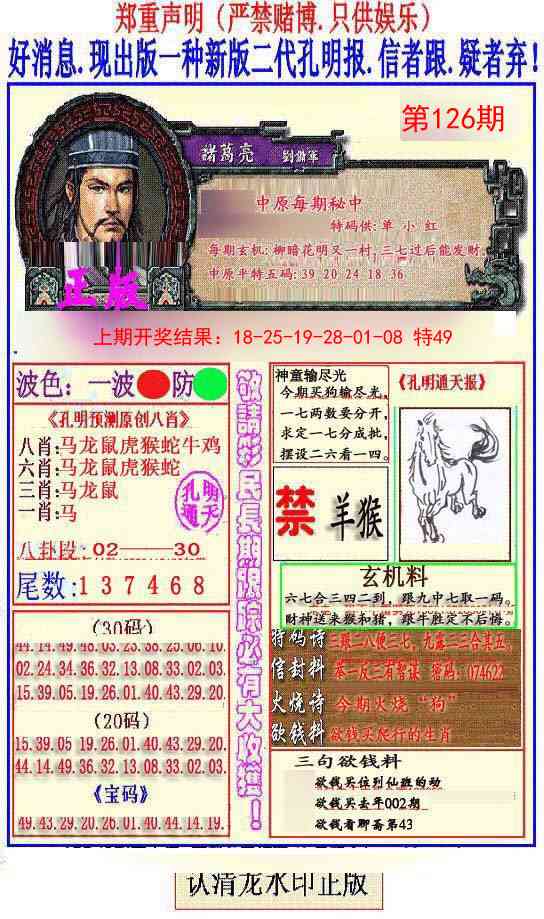 郑重声明（严禁赌博.只供娱乐）
好消息.现出版一种新版二代孔明报.信者跟.疑者弃!
第126期
諸葛亮 劉備軍
中原每期秘中
特码供:单 小 红
每期玄机:柳暗花明又一村,三七过后能发财.
中原平特五码:39 20 24 18 36
正版
上期开奖结果：18-25-19-28-01-08 特49
波色：一波 防
《孔明预测原创八肖》
八肖:马龙鼠虎猴蛇牛鸡
六肖:马龙鼠虎猴蛇
三肖:马龙鼠
一肖:马
孔明
通天
八卦段:02——30
尾数:137468
(30码)
44.14.49.48.03.23.38.25.06.10.
02.24.34.36.32.13.08.33.02.03.
15.39.05.19.26.01.40.43.29.20.
(20码)
15.39.05 19.26.01.40.43.29.20.
44.14.49.36.32.13.08.33.02.03.
《宝码》
49.43.29.20.26.01.40.44.14.19.
敬請彩民長期跟踪必有大收獲！
神童输尽光
今期买狗输尽光,
一七两数要分开,
求定一七分成批,
摆设二六看一四。
《孔明通天报》
禁 羊猴
玄机料
六七合三四二到，跟九中七取一码。
财神送来猴和猪，跟牛胜定不后悔。
特码诗 三跟二八便三七，九露二三合其五。
信封料 举一反三有智谋 密码：074622
火烧诗 今期火烧“狗”
欲钱料 欲钱买爬行的生肖
三句欲钱料
欲钱买位列仙班的动
欲钱买去年002期
欲钱看聊斋第43
认清龙水印正版